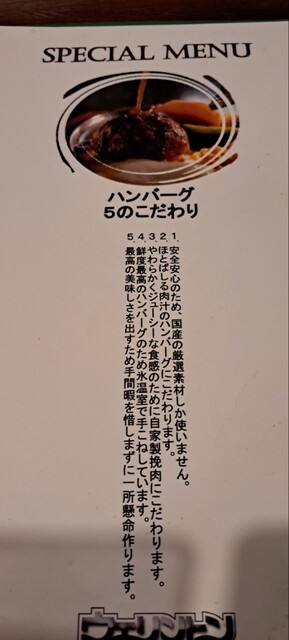 SPECIAL MENU
ハンバーグ
5のこだわり
1. 安全安心のため、国産の厳選素材しか使いません。
2. ほとばしる肉汁のハンバーグにこだわります。
3. やわらかくジューシーな食感のために自家製挽肉にこだわります。
4. 鮮度最高のハンバーグのため氷温室で手こねしています。
5. 最高の美味しさを出すため手間暇を惜しまずに一所懸命作ります。